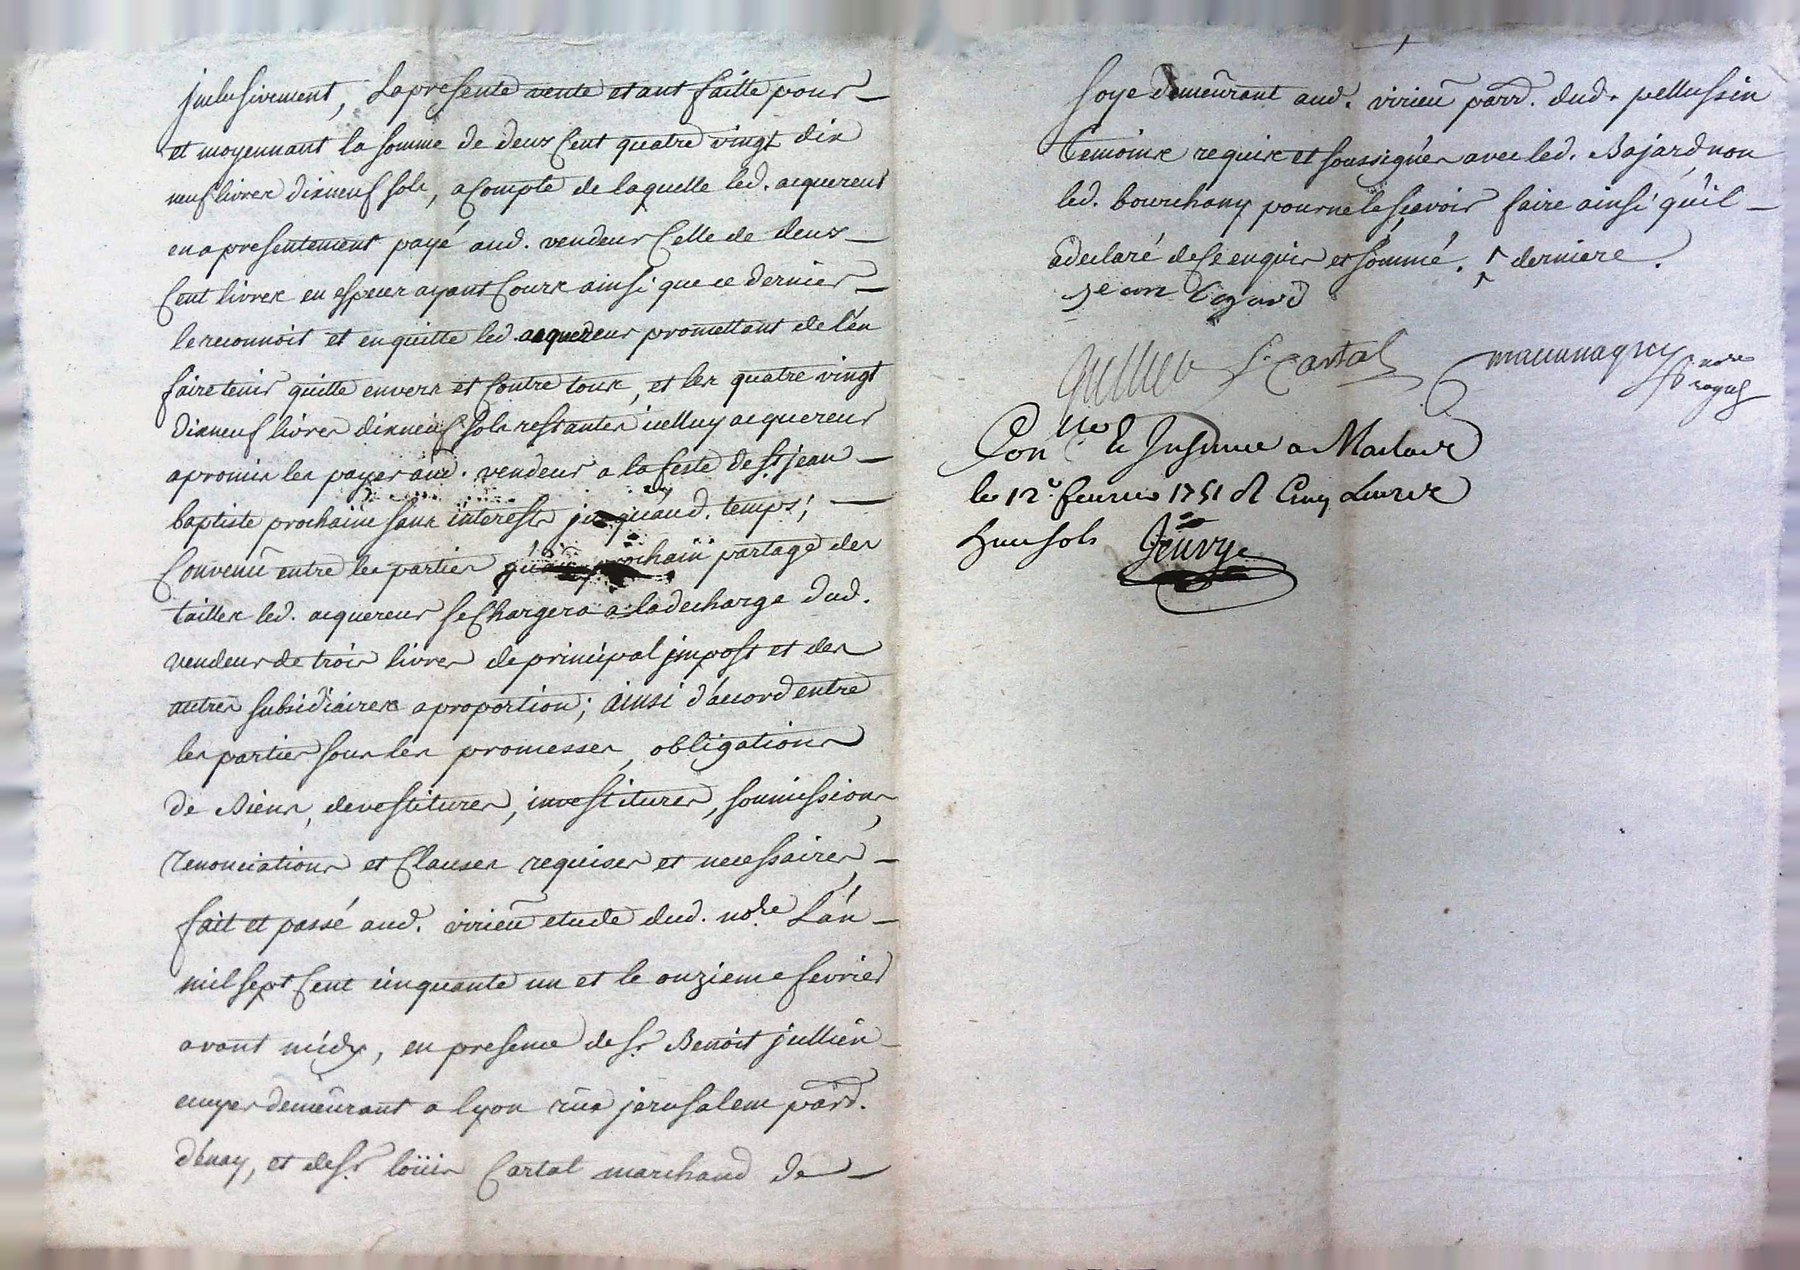 inclusivement, la presente vente etant faitte pour
et moyennant la somme de deux cent quatre vingt dix
neuf livres dixneuf sols, a compte de laquelle led. acquereur
en a presentement payé aud. vendeur celle de deux
cent livres en especes ayant cours ainsi que ce dernier
le reconnoit et en quitte led. acquereur promettant de l'en
faire tenir quitte envers et contre tous, et les quatre vingt
dixneuf livres dixneuf sols restantes icelluy acquereur
a promis les payer aud. vendeur a la feste de st jean
baptiste prochaine sans interests jusqu'aud. temps;
convenû entre les parties qu'au prochain partage des
tailles led. acquereur se chargera a la decharge dud.
vendeur de trois livres de principal impost et des
autres subsidiaires a proportion; ainsi d'accord entre
les parties sous les promesses, obligations
de Biens, devestitures, investitures, soumissions,
renonciations et clauses requises et necessaires,
fait et passé aud. virieu etude dud. nore L'an
mil sept cent cinquante un et le onzieme fevrier
avant midy, en presence de sr. Benoit jullien
demeurant a lyon rüe jerusalem parr.
d'énay, et de sr. loüis Cartal marchand de
soye demeurant aud. virieu parr. dud. pellussin
temoins requis et soussignés avec led. Bajard non
led. bourchany pour ne le sçavoir faire ainsi qu'il
a declaré de ce enquis et sommé. dernière.
jean bajard
jullien L. Cartal
nore royal
Con lle & Insinué a Malleval
le 12e. fevrier 1751 R Cinq Livres
huit sols